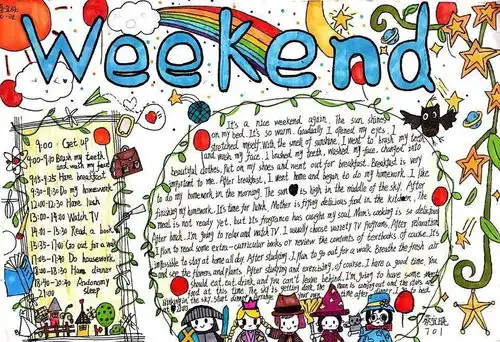 Weekend
9:00 Get up
Brush my teeth
and wash my face
Have breakfast
9:30-11:30 Do my homework
12:00-12:30 Have lunch
13:00-14:00 Watch TV
14:01-15:30 Read a book
Go out for a walk
Do housework
Have dinner
sleep
21:00
It's a nice weekend again. The sun shines
on my bed. It's so warm. Gradually I opened my eyes, I
stretched myself with the smell of sunshine. I went to brush my teeth
and wash my face. I brushed my teeth, washed my face, changed into
beautiful clothes. Put on my shoes and went out for breakfast. Breakfast is very
important to me. After breakfast, I went home and began to do my homework. I like
to do my homework in the morning. The sun is high in the middle of the sky. After
finishing my homework. It's time for lunch. Mother is frying delicious food in the kitchen. The
meal is not ready yet, but its fragrance has caught my soul. Mom's cooking is so delicious
After lunch, I'm going to relax and watch TV. I usually choose variety TV programs. After relaxation
I plan to read some extra-curricular books or review the contents of textbooks of course. It's
impossible to stay at home all day. After studying, I plan to go out for a walk. Breathe the fresh air
and see the flowers and plants. After studying and exercising, of course, I have a good time. You
should eat, drink, and you can't leave behind. I'm going to have some
at this time. The sky is getting dark, the moon is and the stars are
in the sky. after dinner, to bed
701